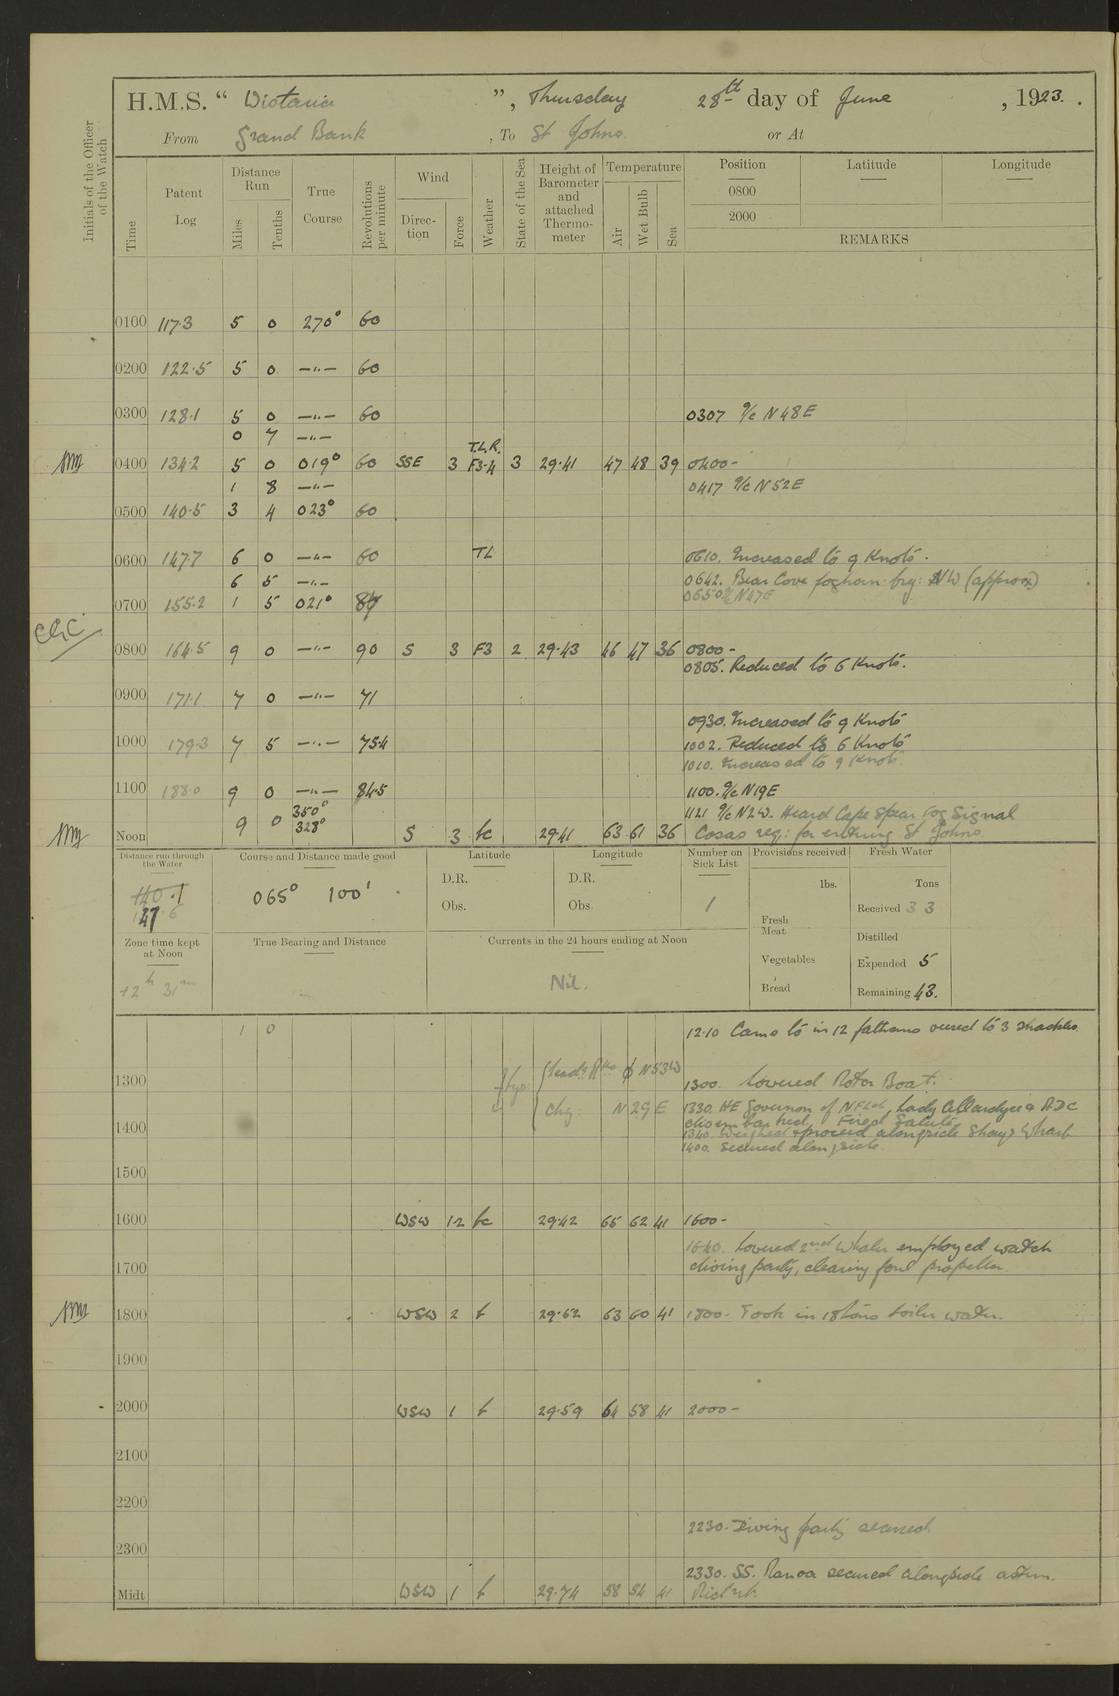 H.M.S. " Wistaria ", Thursday 28th day of June , 1923.
From Grand Bank , To St Johns. or At
Initials of the Officer of the Watch
Time
Patent Log
Distance Run
Miles
Tenths
True Course
Revolutions per minute
Wind
Direction
Force
Weather
State of the Sea
Height of Barometer and attached Thermometer
Temperature
Air
Wet Bulb
Sea
Position
0800
2000
Latitude
Longitude
REMARKS
0100 117.3 5 0 270° 60
0200 122.5 5 0 —"— 60
0300 128.1 5 0 —"— 60 0307 a/c N48E
0 7 —"—
T.L.R.
0400 134.2 5 0 019° 60 SSE 3 F3-4 3 29.41 47 48 39 0400-
1 8 —"— 0417 a/c N52E
0500 140.5 3 4 023° 60
0600 147.7 6 0 —"— 60 TL 0610. Increased to 9 Knots.
6 5 —"— 0642. Bear Cove foghorn brg: NW (approx)
0650 a/c N47E
0700 155.2 1 5 021°
0800 164.5 9 0 —"— 90 S 3 F3 2 29.43 46 47 36 0800-
0805. Reduced to 6 Knots.
0900 171.1 7 0 —"— 71
0930. Increased to 9 Knots
1000 179.3 7 5 —"— 75.4 1002. Reduced to 6 Knots
1010. Increased to 9 Knots.
1100 188.0 9 0 —"— 84.5 1100. a/c N19E
350° 1121 a/c N2W. Heard Cape Spear Fog Signal
Noon 9 0 328° S 3 bc 29.41 63 61 36 Cosao req: for entering St Johns.
Distance run through the Water
147.6
Course and Distance made good
065° 100'
Latitude
D.R.
Obs.
Longitude
D.R.
Obs.
Number on Sick List
1
Provisions received
lbs.
Fresh Meat
Vegetables
Bread
Fresh Water
Tons
Received 33
Distilled
Expended 5
Remaining 43.
Zone time kept at Noon
+2h 31m
True Bearing and Distance
Currents in the 24 hours ending at Noon
Nil.
1 0 12.10 Came to in 12 fathoms veered to 3 shackles
N53W
1300 1300. Lowered Motor Boat.
N29E 1330. HE Governor of NFLd, Lady Allardyce & ADC
disembarked, Fired Salute
1400 1340. Weighed & proceed alongside Shea's Wharf
1400. Secured alongside
1500
1600 WSW 1-2 bc 29.42 65 62 41 1600-
1640. Lowered 2nd Whaler employed watch
1700 diving party, clearing foul propeller.
1800 WSW 2 b 29.62 63 60 41 1800. Took in 18 tons boiler water.
1900
2000 WSW 1 b 29.59 64 58 41 2000-
2100
2200
2230. Diving party secured
2300
2330. SS. Ranoa secured alongside astern.
Midt WSW 1 b 29.74 58 54 41